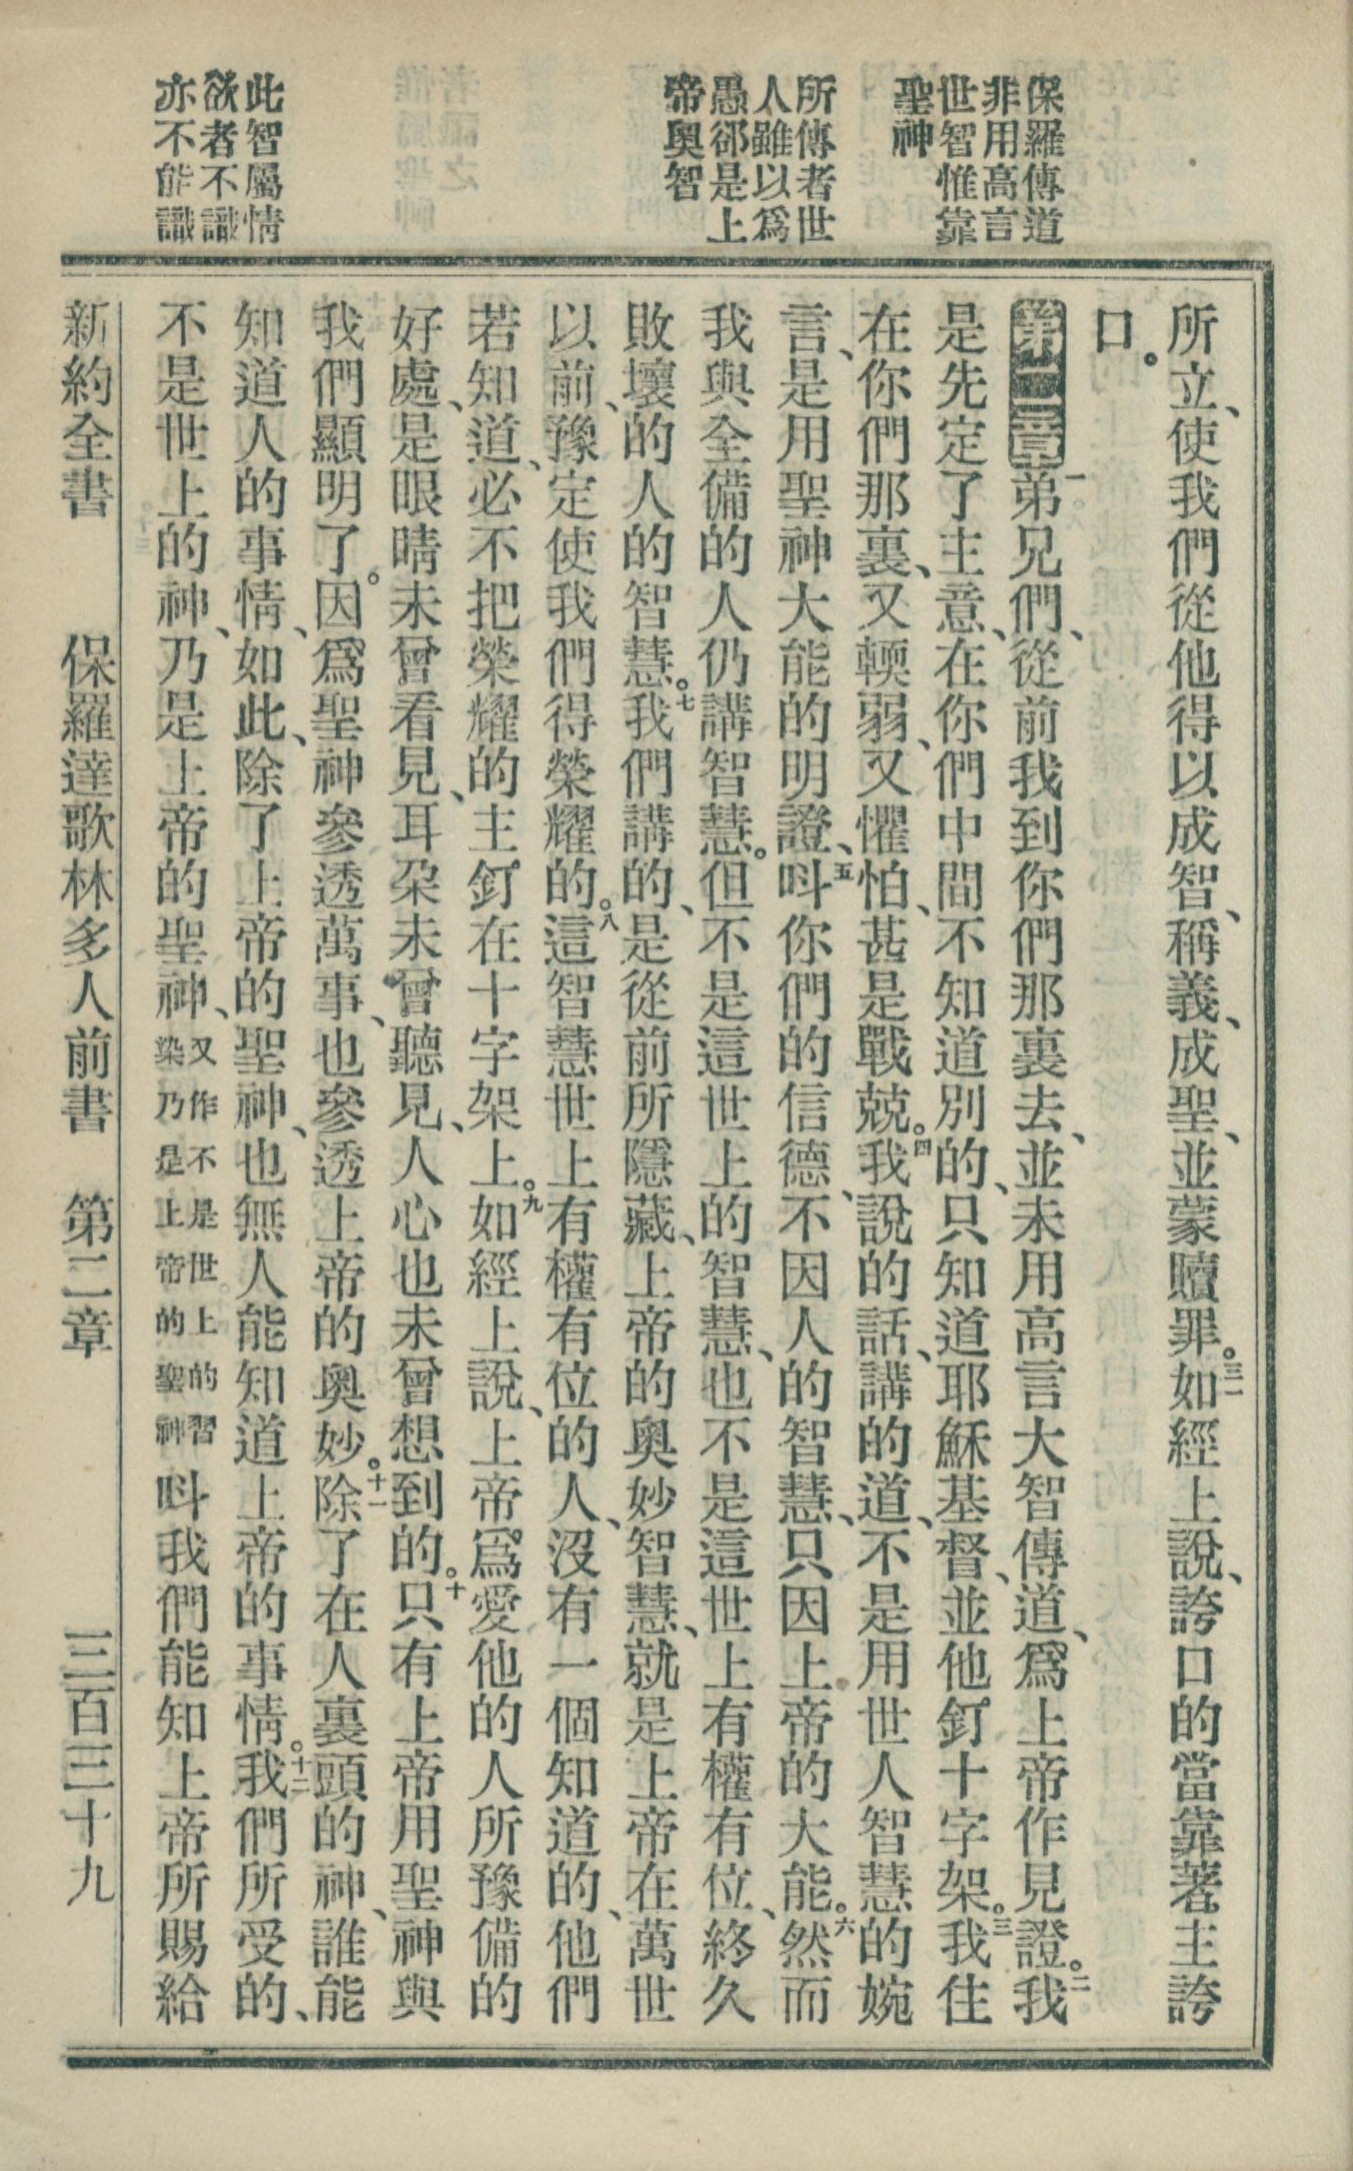 保羅傳道
非用高言
世智惟靠
聖神
所傳者世
人雖以爲
愚郤是上
帝奧智
此智屬情
欲者不識
亦不能識
所立、使我們從他得以成智、稱義、成聖、並蒙贖罪。三一如經上說、誇口的當靠著主誇
口。
第二章一弟兄們、從前我到你們那裏去、並未用高言大智傳道、爲上帝作見證。二我
是先定了主意、在你們中間不知道別的、只知道耶穌基督、並他釘十字架。三我住
在你們那裏、又輭弱、又懼怕、甚是戰兢。四我說的話、講的道、不是用世人智慧的婉
言、是用聖神大能的明證、五呌你們的信德、不因人的智慧、只因上帝的大能。六然而
我與全備的人仍講智慧。但不是這世上的智慧、也不是這世上有權有位、終久
敗壞的人的智慧。七我們講的、是從前所隱藏、上帝的奧妙智慧、就是上帝在萬世
以前、豫定使我們得榮耀的。八這智慧世上有權有位的人、沒有一個知道的、他們
若知道、必不把榮耀的主釘在十字架上。九如經上說、上帝爲愛他的人所豫備的
好處、是眼睛未曾看見、耳朶未曾聽見、人心也未曾想到的。十只有上帝用聖神與
我們顯明了。因爲聖神參透萬事、也參透上帝的奧妙。十一除了在人裏頭的神、誰能
知道人的事情、如此、除了上帝的聖神、也無人能知道上帝的事情。十二我們所受的、
不是世上的神、乃是上帝的聖神、又作不是世上的習染乃是上帝的聖神呌我們能知上帝所賜給
新約全書 保羅達歌林多人前書 第二章 三百三十九